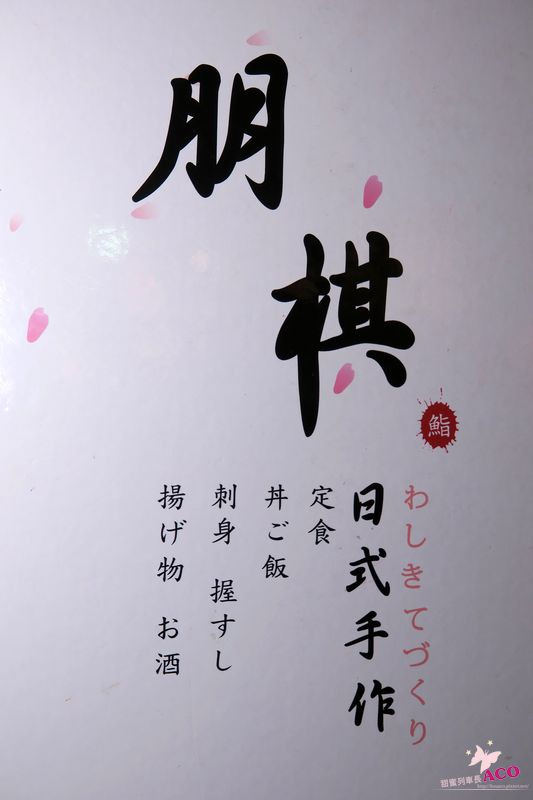 朋棋
鮨
わしきてづくり
日式手作
定食
丼ご飯
刺身 握すし
揚げ物 お酒
甜蜜列車長ACO